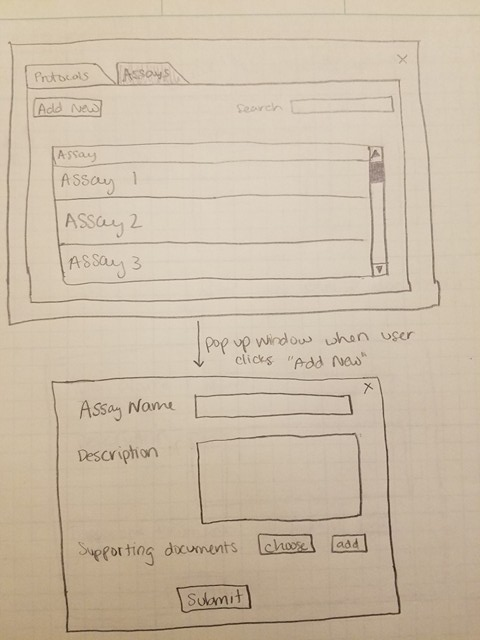 Protocals Assays x
Add New Search
Assay
Assay 1
Assay 2
Assay 3
pop up window when user
clicks "Add New"
x
Assay Name
Description
Supporting documents choose add
Submit